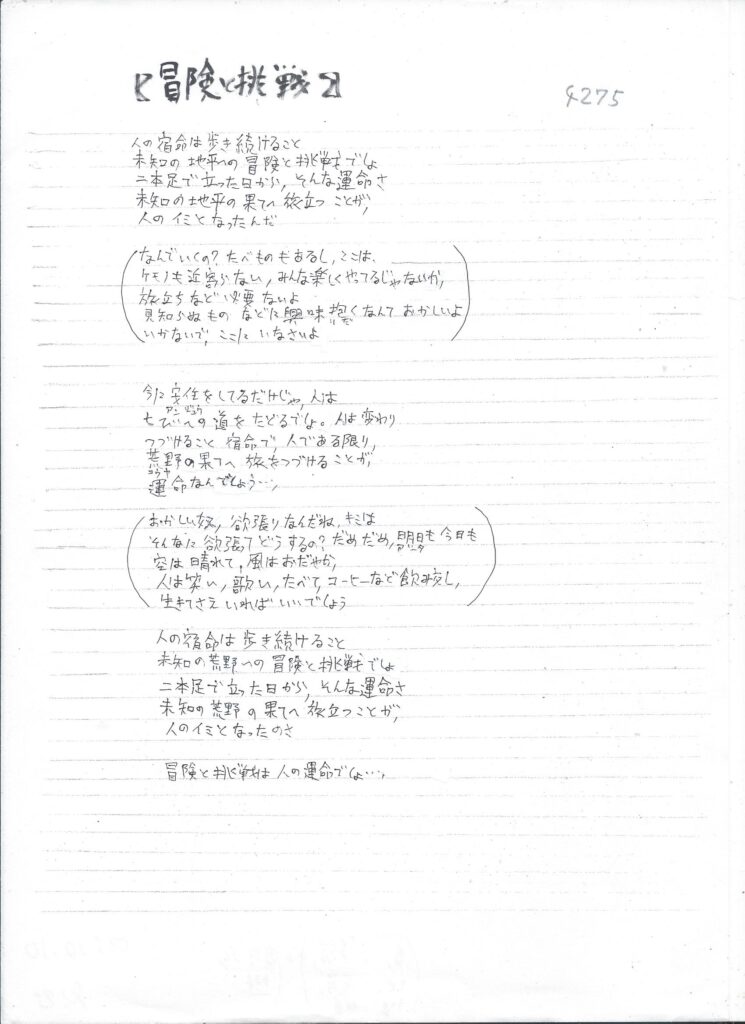 【冒険と挑戦】
4275
人の宿命は歩き続けること
未知の地平への冒険と挑戦でしょ
二本足で立った日から、そんな運命さ
未知の地平の果てへ旅立つことが、
人のイミとなったんだ
なんでいくの?たべものもあるし、ここは、
ケモノも近寄らない、みんな楽しくやってるじゃないか、
旅立ちなど必要ないよ
見知らぬものなどに興味抱くなんておかしいよ
いだ
いかないで、ここにいなさいよ
今に安住をしてるだけじゃ、人は
アンジュウ
への道をたどるでしょ。人は変わり
つづけること宿命で、人である限り、
荒野の果てへ旅をつづけることが、
コウヤ
運命なんでしょう…、
おかしな奴、欲張りなんだね、キミは
そんなに欲張ってどうするの?だめだめ、明日も今日も
空は晴れて、風はおだやか、
人は笑い、歌い、たべて、コーヒーなど飲み交し、
生きてさえいればいいでしょう
人の宿命は歩き続けること
未知の荒野への冒険と挑戦でしょ
二本足で立った日から、そんな運命さ
未知の荒野の果てへ旅立つことが、
人のイミとなったのさ
冒険と挑戦は人の運命でしょ…、